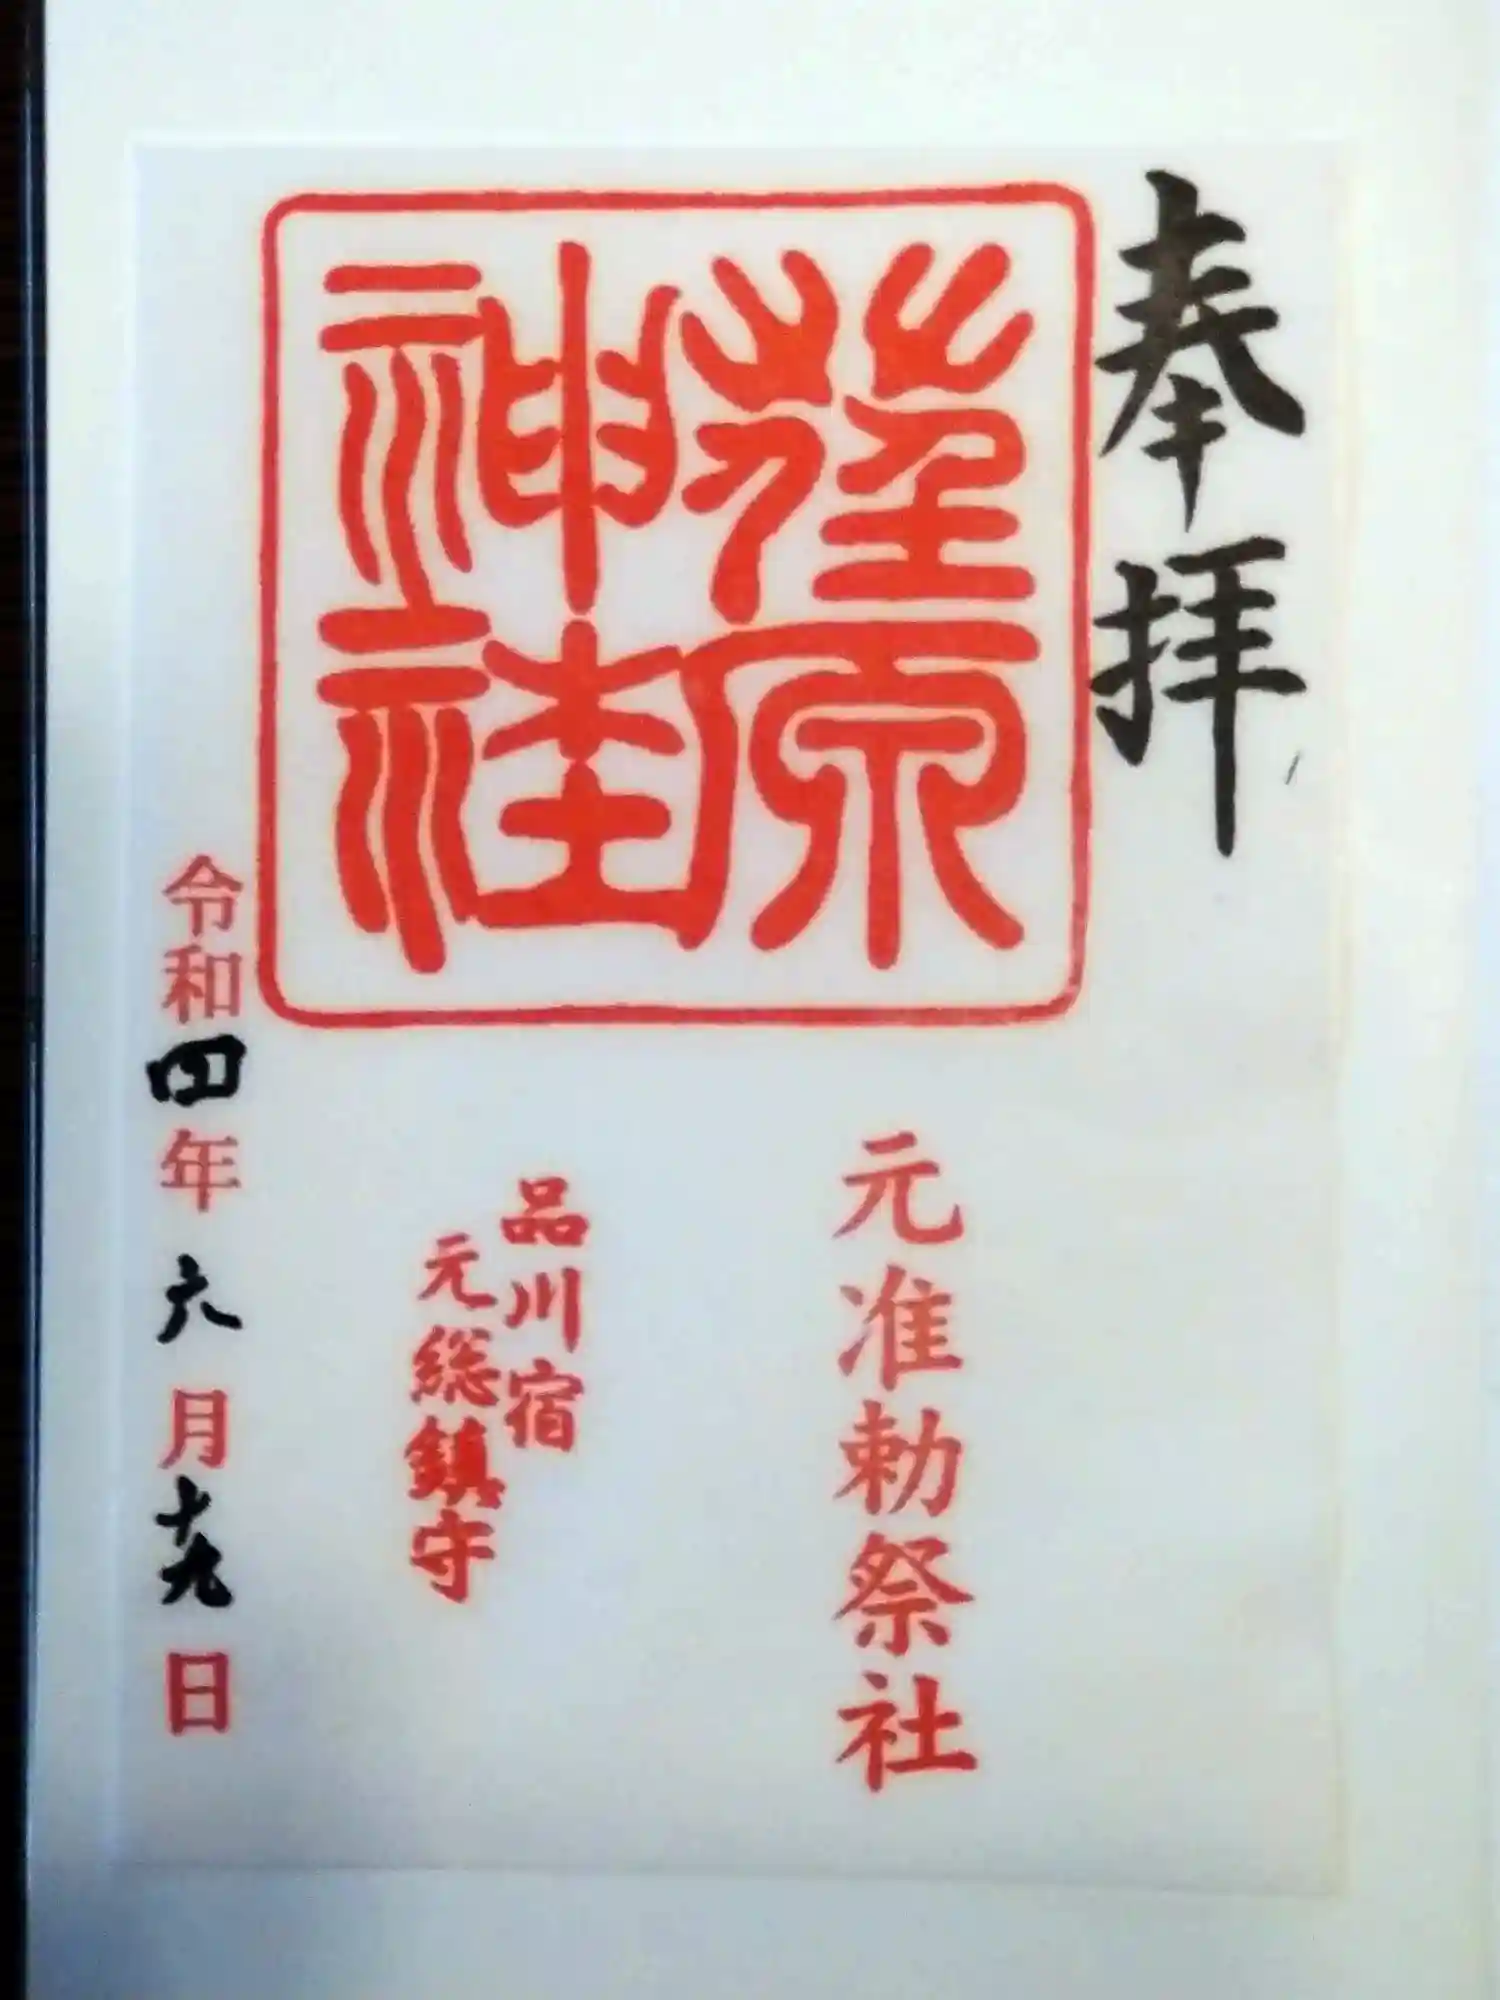 奉拝
荏原神社
元准勅祭社
品川宿
元総鎮守
令和四年六月十九日